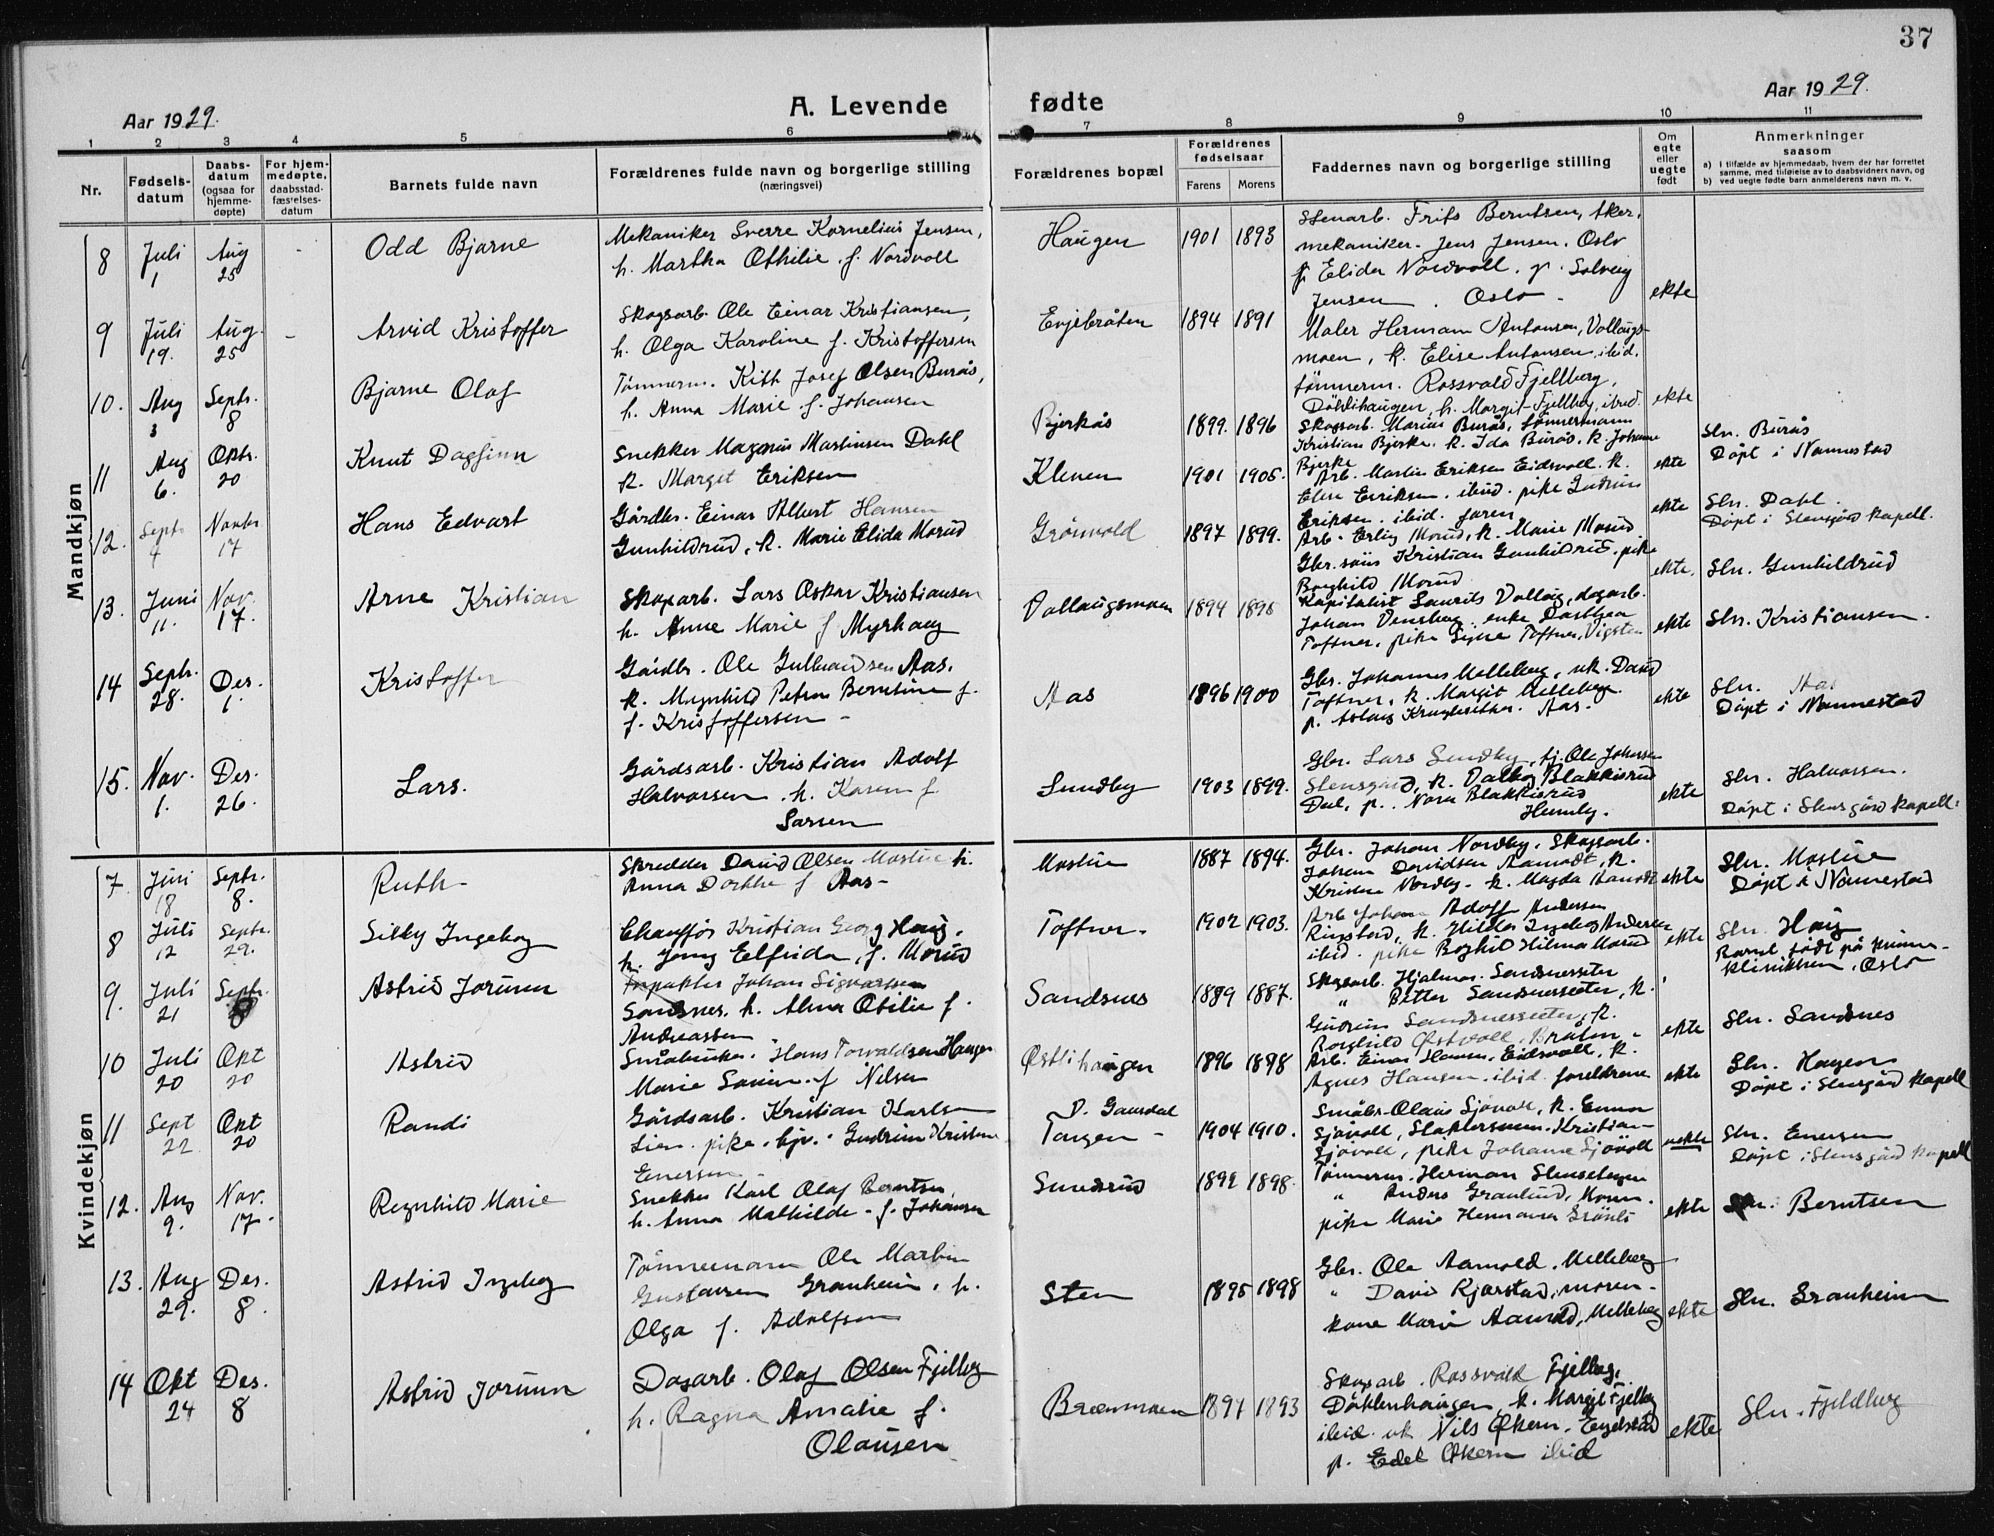 37
Aar 1929.
A. Levende fødte
Aar 1929.
1 2 3 4 5 6 7 8 9 10 11
Nr.
Fødsels-
datum
Daabs-
datum
(ogsaa for
hjemme-
døpte)
For hjem-
medøpte,
daabsstad-
fæstelses-
datum
Barnets fulde navn
Forældrenes fulde navn og borgerlige stilling
(næringsvei)
Forældrenes bopæl
Forældrenes
fødselsaar
Farens Morens
Faddernes navn og borgerlige stilling
Om
egte
eller
uegte
født
Anmerkninger
saasom
a) I tilfælde av hjemmedaab, hvem der har forrettet
samme, med tilføielse av to daabsvidners navn, og
b) ved uegte fødte barn anmelderens navn m. v.
Mandkjøn
8 Juli 1 Aug 25 - Odd Bjarne
Mekaniker Sverre Kornelius Jensen,
h. Martha Othilie f. Nordvoll
Haugen 1901 1893
Stenarb. Frits Berntsen, Aker,
mekaniker. Jens Jensen. Oslo
p. Elida Nordvoll. p. Solveig
Jensen. Oslo -
ekte
9 Juli 19. Aug. 25 - Arvid Kristoffer
Skogsarb. Ole Einar Kristiansen,
h. Olga Karoline f. Kristoffersen
Enjebråten 1894 1891
Maler Herman Antonsen, Vollaugs-
moen, k. Elise Antonsen, ibid.
tömmerm. Rossvald Fjellberg,
Döhlihaugen, h. Margit Fjellberg, ibid.
ekte
10. Aug 3 Septr. 8 Bjarne Olaf
Tömmerm. Kith Josef Olsen Burås,
h. Anna Marie f. Johansen
Bjerkås 1899. 1896
Skogsarb. Marius Burås, tömmermann
Kristian Bjerke. k. Ida Burås. k. Johanne
Bjerke
ekte
Sln. Burås
Döpt i Nannestad
11 Aug 6. Oktr. 20 Knut Dagfinn
Snekker Magnus Martinsen Dahl
k. Margit Eriksen
Kleven 1901 1905.
Arb. Martin Eriksen Eidsvoll. k.
Elise Eriksen. ibid. pike Gudrun
Eriksen. ibid. faren
ekte
Sln. Dahl.
Döpt i Stensgård kapell.
12. Septr 4 Novbr 17 Hans Edvart
Gårdbr. Einar Albert Hansen
Gunhildrud, k. Marie Elida Morud
Grönvold 1897 1899.
Arb. Erling Morud, k. Marie Morud
Gbr. søns Kristian Gunhildrud. pike
Borghild Morud
ekte.
Sln. Gunhildrud
13. Juni 11. Nov. 17. Arne Kristian
Skogarb. Lars Oskar Kristiansen
h. Anne Marie f Myrhaug
Vollaugsmoen 1894 1895
Kapitalist Laurits Vollaug, dagarb.
Johan Vensberg. enke Dorthea
Toftner, pike Signe Toftner, Vigsten
ekte
Sln. Kristiansen.
14 Septr. 28. Des. 1. Kristoffer
Gårdbr. Ole Gulbrandsen Aas.
k. Magnhild Petra Berntine f.
f. Kristoffersen -
Aas 1896 1900
Gbr. Johannes Melleberg, uk. David
Toftner, k. Margit Melleberg.
p. Aslaug Krugleiken. Aas.
ekte
Sln. Aas
Döpt i Nannestad
15. Nov. 1. Des. 26. Lars.
Gårdsarb. Kristian Adolf
Halvorsen. h. Karen f.
Larsen
Sundby 1903 1899.
Gbr. Lars Sundby, tj. Ole Johansen
Stensgård, k. Valborg Blakkisrud
Dal, p. Nora Blakkisrud
Hemby.
ekte
Sln. Halvorsen.
Döpt i Stensgård kapell.
Kvindekjøn
7. Juni 18 Septr. 8. Ruth
Skredder David Olsen Mostue h.
Anna Dorthe f Aas-
Mostue 1887 1894.
Gbr. Johan Nordby, Skogsarb.
Johan Davidsen Aamodt, k.
Kristine Nordby. k. Magda Aamodt
ekte
Sln. Mostue
Döpt i Nannestad
8 Juli 12 Septr. 29. Silly Ingeborg
Chauffør Kristian Georg Haug.
h. Jenny Elfrida, f. Morud
Toftner. 1902 1903.
Arb Johan Adolf Andersen
Ringstad, k. Hilda Ingeborg Andersen
ibid. pike Boghil Hilma Morud
ekte
Sln. Haug
Barnet født på kvinne-
klinikken, Oslo
9. Juli 21 Septr. 8 Astrid Jorunn
Inspektör Johan Sigvartsen
Sandsnes. h. Alma Otilie f.
Andreassen
Sandsnes 1889 1887.
Skogsarb. Hjalmar Sandsnesseter
" Petter Sandsnesseter, k.
Gudrun Sandsnesseter, k.
Borghild Østvoll. Bråten -
ekte
Sln. Sandsnes
10 Juli 20 Okt 20 Astrid
Småbruker. Hans Torvaldsen Haugen
Marie Lovise. f Nilsen
Østlihaugen 1896 1898
Arb. Einar Hansen, Eidsvoll, k.
Agnes Hansen. ibid. foreldrene
ekte
Sln. Haugen
Döpt i Stensgård kapell
11 Sept 22 Okt 20 Randi
Gårdsarb. Kristian Karlsen
Lien. pike. hjv. Gudrun Kristine
Enersen
V. Gausdal
Tangen - 1904 1910.
Småbr. Olaus Sjøvoll, k. Emma
Sjøvoll, Kristian
Sjøvoll, pike Johanne Sjøvoll
uekte
Sln. Enersen
Döpt i Stensgård kapell
12. Aug 9. Nov. 17. Ragnhild Marie
Snekker Karl Olaf Berntsen
h. Anna Mathilde f. Johansen
Sundrud 1892 1898.
Tömmerm. Herman Stenshagen
" Anders Granlund, Moen.
pike Marie Hermansen Grönli
ekte
Sln. Berntsen
13. Aug 29. Des. 8. Astrid Ingeborg
Tömmermann Ole Martin
Gustavsen Granheim, h.
Olga f. Adolfsen
Sten 1895 1898
Gbr. Ole Aamold, Melleberg
" David Kjærstad, moren -
kone Marie Aamold, Melleberg
ekte
Sln. Granheim
14 Okt 24 Des. 8 Astrid Jorunn
Dagarb. Olaf Olsen Fjelberg
h. Ragna Amalie f.
Olausen
Brennmoen 1891 1893
Skogsarb. Rossvald Fjelberg.
Döhlenhaugen, k. Margit Fjelberg
ibid. uk Nils Økern, Engelstad
p. Edel Økern ibid
ekte
Sln. Fjeldberg